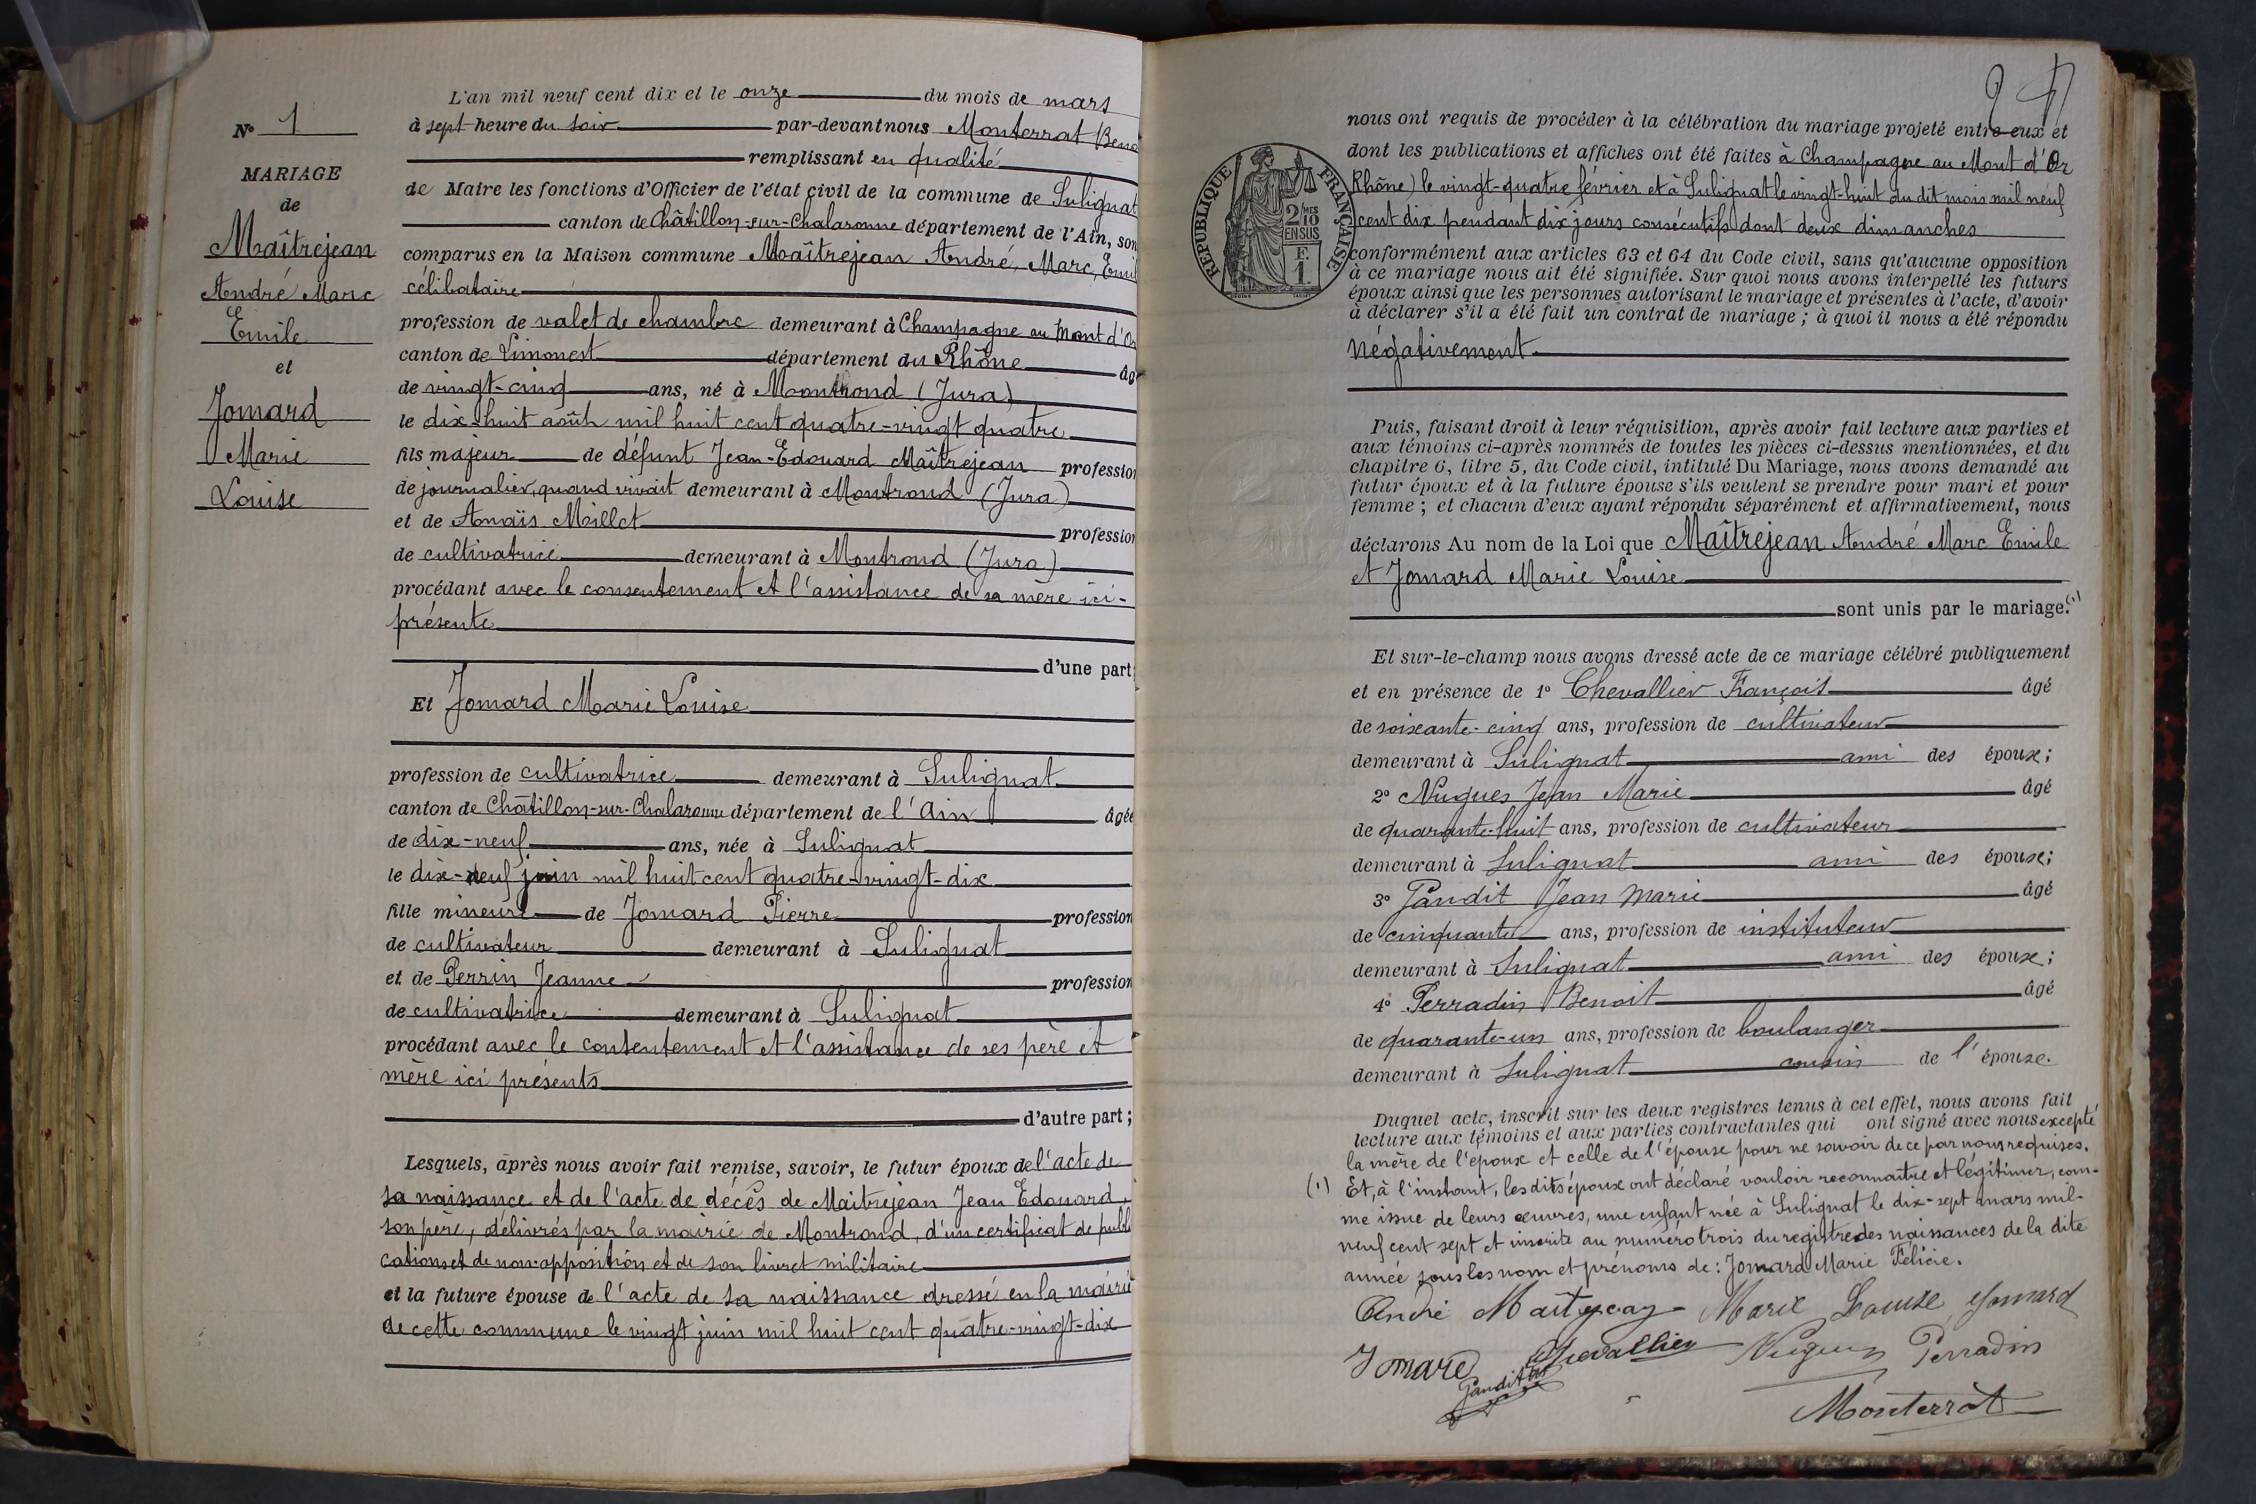 L'an mil neuf cent dix et le onze du mois de mars
N° 1
à sept heure du soir par-devant nous Monterrat Beno
remplissant en qualité
MARIAGE
de Maire les fonctions d'Officier de l'état civil de la commune de Sulignat
de
canton de Châtillon-sur-Chalaronne département de l'Ain, son
Maîtrejean
comparus en la Maison commune Maîtrejean André, Marc, Emil
André Marc
célibataire
Emile
profession de valet de chambre demeurant à Champagne au Mont d'Or
et
canton de Limonest département du Rhône âg
de vingt-cinq ans, né à Montrond (Jura)
Jomard
le dix-huit août mil huit cent quatre-vingt quatre
Marie
fils majeur de défunt Jean-Edouard Maîtrejean profession
Louise
de journalier, quand vivait demeurant à Montrond (Jura)
et de Anaïs Maillet profession
de cultivatrice demeurant à Montrond (Jura)
procédant avec le consentement et l'assistance de sa mère ici-
présente
d'une part;
Et Jomard Marie Louise
profession de cultivatrice demeurant à Sulignat
canton de Châtillon-sur-Chalaronne département de l'Ain âgée
de dix-neuf ans, née à Sulignat
le dix-neuf juin mil huit cent quatre-vingt-dix
fille mineure de Jomard Pierre profession
de cultivateur demeurant à Sulignat
et de Perrin Jeanne profession
de cultivatrice demeurant à Sulignat
procédant avec le consentement et l'assistance de ses père et
mère ici présents
d'autre part;
Lesquels, après nous avoir fait remise, savoir, le futur époux de l'acte de
sa naissance et de l'acte de décès de Maitrejean Jean Edouard,
son père, délivrés par la mairie de Montrond, d'un certificat de publi
cations et de non-opposition et de son livret militaire
et la future épouse de l'acte de sa naissance dressé en la mairie
de cette commune le vingt juin mil huit cent quatre-vingt-dix
nous ont requis de procéder à la célébration du mariage projeté entre eux et
dont les publications et affiches ont été faites à Champagne au Mont d'Or
Rhône) le vingt-quatre février et à Sulignat le vingt-huit du dit mois mil neuf
cent dix pendant dix jours consécutifs dont deux dimanches
RÉPUBLIQUE FRANÇAISE
2/MES
10
EN SUS
F.
1.
conformément aux articles 63 et 64 du Code civil, sans qu'aucune opposition
à ce mariage nous ait été signifiée. Sur quoi nous avons interpellé les futurs
époux ainsi que les personnes autorisant le mariage et présentes à l'acte, d'avoir
à déclarer s'il a été fait un contrat de mariage; à quoi il nous a été répondu
négativement
Puis, faisant droit à leur réquisition, après avoir fait lecture aux parties et
aux témoins ci-après nommés de toutes les pièces ci-dessus mentionnées, et du
chapitre 6, titre 5, du Code civil, intitulé Du Mariage, nous avons demandé au
futur époux et à la future épouse s'ils veulent se prendre pour mari et pour
femme; et chacun d'eux ayant répondu séparément et affirmativement, nous
déclarons Au nom de la Loi que Maîtrejean André Marc Emile
et Jomard Marie Louise
sont unis par le mariage. (1)
Et sur-le-champ nous avons dressé acte de ce mariage célébré publiquement
et en présence de 1° Chevallier François âgé
de soixante-cinq ans, profession de cultivateur
demeurant à Sulignat ami des époux;
2° Nugues Jean Marie âgé
de quarante-huit ans, profession de cultivateur
demeurant à Sulignat ami des époux;
3° Pandit Jean Marie âgé
de cinquante ans, profession de instituteur
demeurant à Sulignat ami des époux;
4° Perradin Benoit âgé
de quarante-un ans, profession de boulanger
demeurant à Sulignat cousin de l'épouse.
Duquel acte, inscrit sur les deux registres tenus à cet effet, nous avons fait
lecture aux témoins et aux parties contractantes qui ont signé avec nous excepté
la mère de l'époux et celle de l'épouse pour ne savoir de ce par nous requises.
(1) Et, à l'instant, les dits époux ont déclaré vouloir reconnaître et légitimer, com-
me issue de leurs œuvres, une enfant née à Sulignat le dix-sept mars mil-
neuf cent sept et inscrite au numéro trois du registre des naissances de la dite
année sous les nom et prénoms de: Jomard Marie Félicie.
André Marie Louise Jomard
Jomard Chevallier Nugues Perradin
Pandit
Monterrat